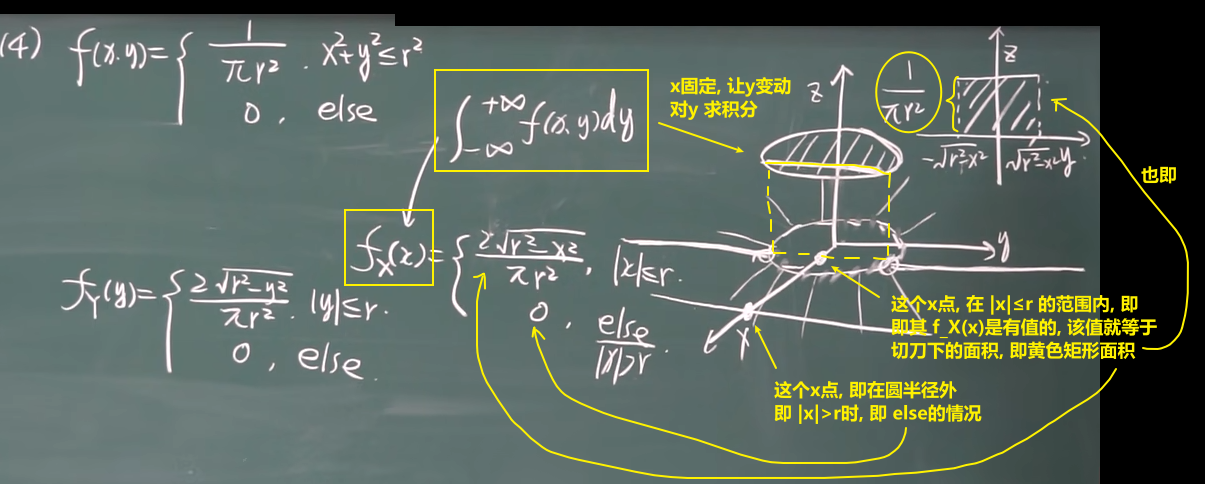 (4) f(x.y)={ 1/πr² . x²+y²≤r²
0 , else
∫_{-∞}^{+∞} f(x.y)dy
x固定, 让y变动
对y 求积分
z
1/πr²
z
-√r²-x² √r²-x² y
也即
f_X(x)={ 2√r²-x²/πr² , |x|≤r.
0 , else
|x|>r .
y
x
f_Y(y)={ 2√r²-y²/πr² . |y|≤r.
0 , else.
这个x点, 在 |x|≤r 的范围内, 即
即其 f_X(x)是有值的, 该值就等于
切刀下的面积, 即黄色矩形面积
这个x点, 即在圆半径外
即 |x|>r时, 即 else的情况